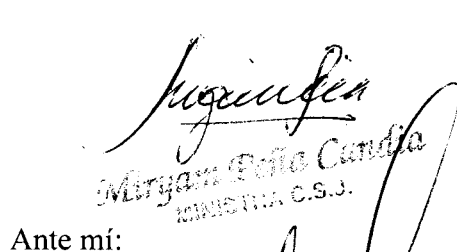 Miryam Peña Candia
MINISTRA C.S.J.
Ante mí: